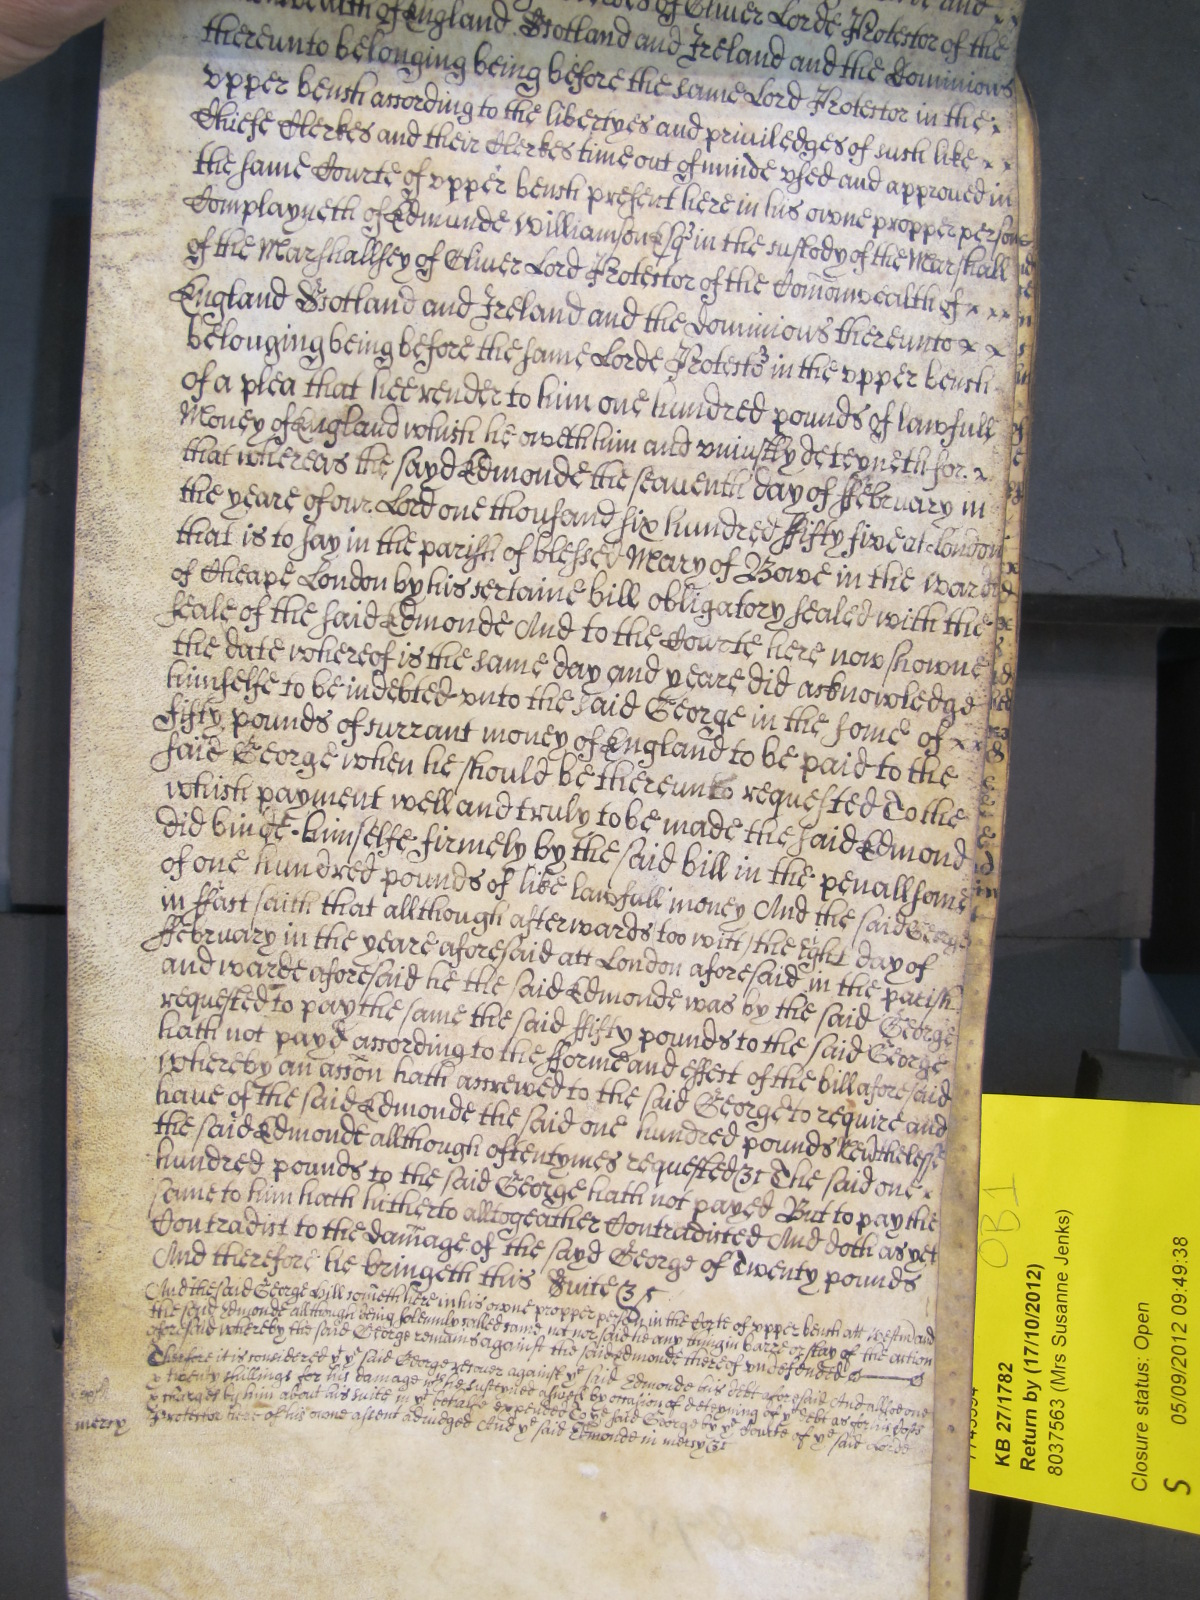 of Oliver Lorde Protector of the
wealth of England Scotland and Ireland and the Dominions
thereunto belonging being before the same Lord Protector in the
vpper bench according to the libertyes and priviledges of such like
Chiefe Clerkes and their Clerkes time out of minde vsed and approved in
the same Courte of vpper bench present here in his owne propper person
Complayneth of Edmunde Williamson Esqr in the custody of the Marshall
of the Marshallsey of Oliver Lord Protector of the Comonwealth of
England Scotland and Ireland and the Dominions thereunto
belonging being before the same Lorde Protector in the vpper bench
of a plea that hee render to him one hundred pounds of lawfull
Money of England which he oweth him and vniustly deteyneth for
that whereas the sayd Edmonde the seaventh day of ffebruary in
the yeare of our Lord one thousand six hundred ffifty five at London
that is to say in the parish of blessed Mary of Bowe in the ward
of Cheape London by his certaine bill obligatory sealed with the
seale of the said Edmonde And to the Courte here now showne
the date whereof is the same day and yeare did acknowledge
himselfe to be indebted vnto the said George in the some of
fifty pounds of currant money of England to be paid to the
said George when he should be thereunto requested To the
which payment well and truly to be made the said Edmond
did binde himselfe firmely by the said bill in the penall some
of one hundred pounds of like lawfull money And the said George
in ffact saith that allthough afterwards too witt the eight day of
ffebruary in the yeare aforesaid att London aforesaid in the parish
and warde aforesaid he the said Edmonde was by the said George
requested to pay the same the said ffifty pounds to the said George
hath not payd according to the fforme and effect of the bill aforesaid
Whereby an accon hath accrewed to the said George to require and
have of the said Edmonde the said one hundred pounds Nevthelesse
the said Edmonde allthough oftentymes requested &c The said one
hundred pounds to the said George hath not payed But to pay the
same to him hath hitherto alltogeather Contradicted And doth as yet
Contradict to the damage of the sayd George of Twenty pounds
And therefore he bringeth this Suite &c
And the said George Bill cometh here in his owne propper person in the Corte of vpper bench att Westm and
the said Edmonde allthough being solemnly called came not nor said he any thing in barre or stay of the action
aforesaid whereby the said George remains against the said Edmonde thereof vndefended
Therfore it is considered yt ye said George recover against ye said Edmonde his debt aforesaid And allsoe one
& twenty shillings for his damage wch he susteyned aswell by occasion of deteyning of ye debt as for his costs
& charges by him about his suite in yt behalfe expended To ye said George by ye Courte of ye said Lorde
Protector here of his owne assent adiudged And ye said Edmonde in mercy &c
mercy
KB 27/1782
Return by (17/10/2012)
8037563 (Mrs Susanne Jenks)
OB 1
Closure status: Open
05/09/2012 09:49:38
S